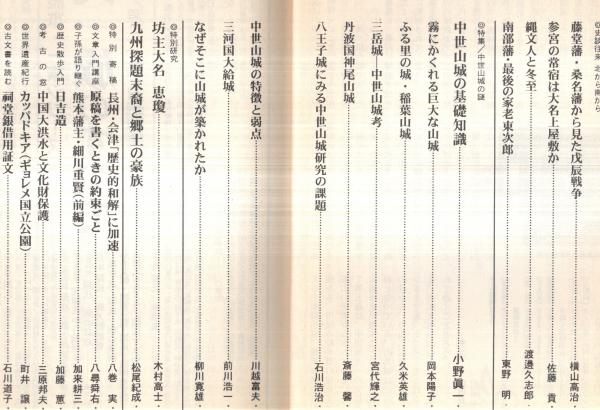 ◎史談往来 北から南から
藤堂藩・桑名藩から見た戊辰戦争 横山高治
参宮の常宿は大名上屋敷か 佐藤 貢
縄文人と冬至 渡邉久志郎
南部藩・最後の家老東次郎 東野 明
◎特集／中世山城の謎
中世山城の基礎知識 小野眞一
霧にかくれる巨大な山城 岡本陽子
ふる里の城・稲葉山城 久米英雄
三岳城―中世山城考 宮代輝之
丹波国神尾山城 斎藤 馨
八王子城にみる中世山城研究の課題 石川浩治
中世山城の特徴と弱点 川越富夫
三河国大給城 前川浩一
なぜそこに山城が築かれたか 柳川寛雄
◎特別研究
坊主大名 恵瓊 木村高士
九州探題末裔と郷土の豪族 松尾紀成
◎特別寄稿 長州、会津「歴史的和解」に加速 八巻 実
◎文章入門講座 原稿を書くときの約束ごと 八尋舜右
◎子孫が語り継ぐ 熊本藩主・細川重賢（前編） 加来耕三
◎歴史散歩入門 日吉造 加藤 蕙
◎考古の窓 中国大洪水と文化財保護 三原邦夫
◎世界遺産紀行 カッパドキア（ギョレメ国立公園） 町井 譲
◎古文書を読む 祠堂銀借用証文 石川道子